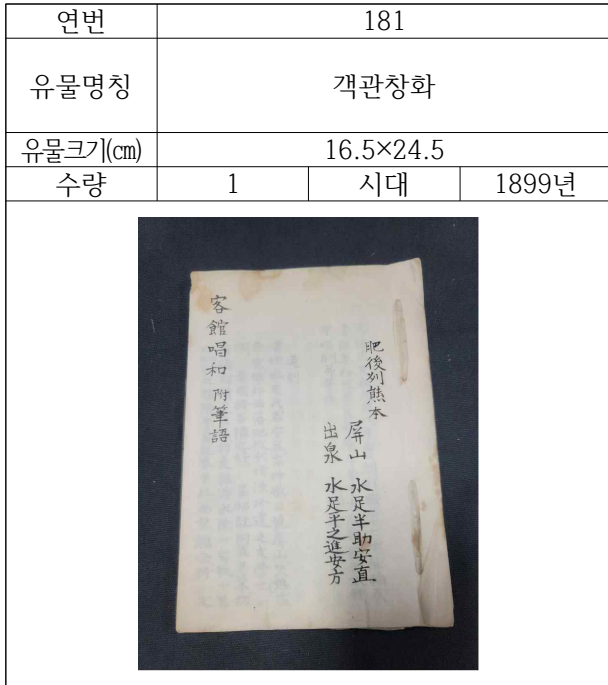 연번 181
유물명칭 객관창화
유물크기(㎝) 16.5×24.5
수량 1 시대 1899년
肥後州熊本
屛山 水足半助安直
出泉 水足平之進安方
客館唱和 附筆語